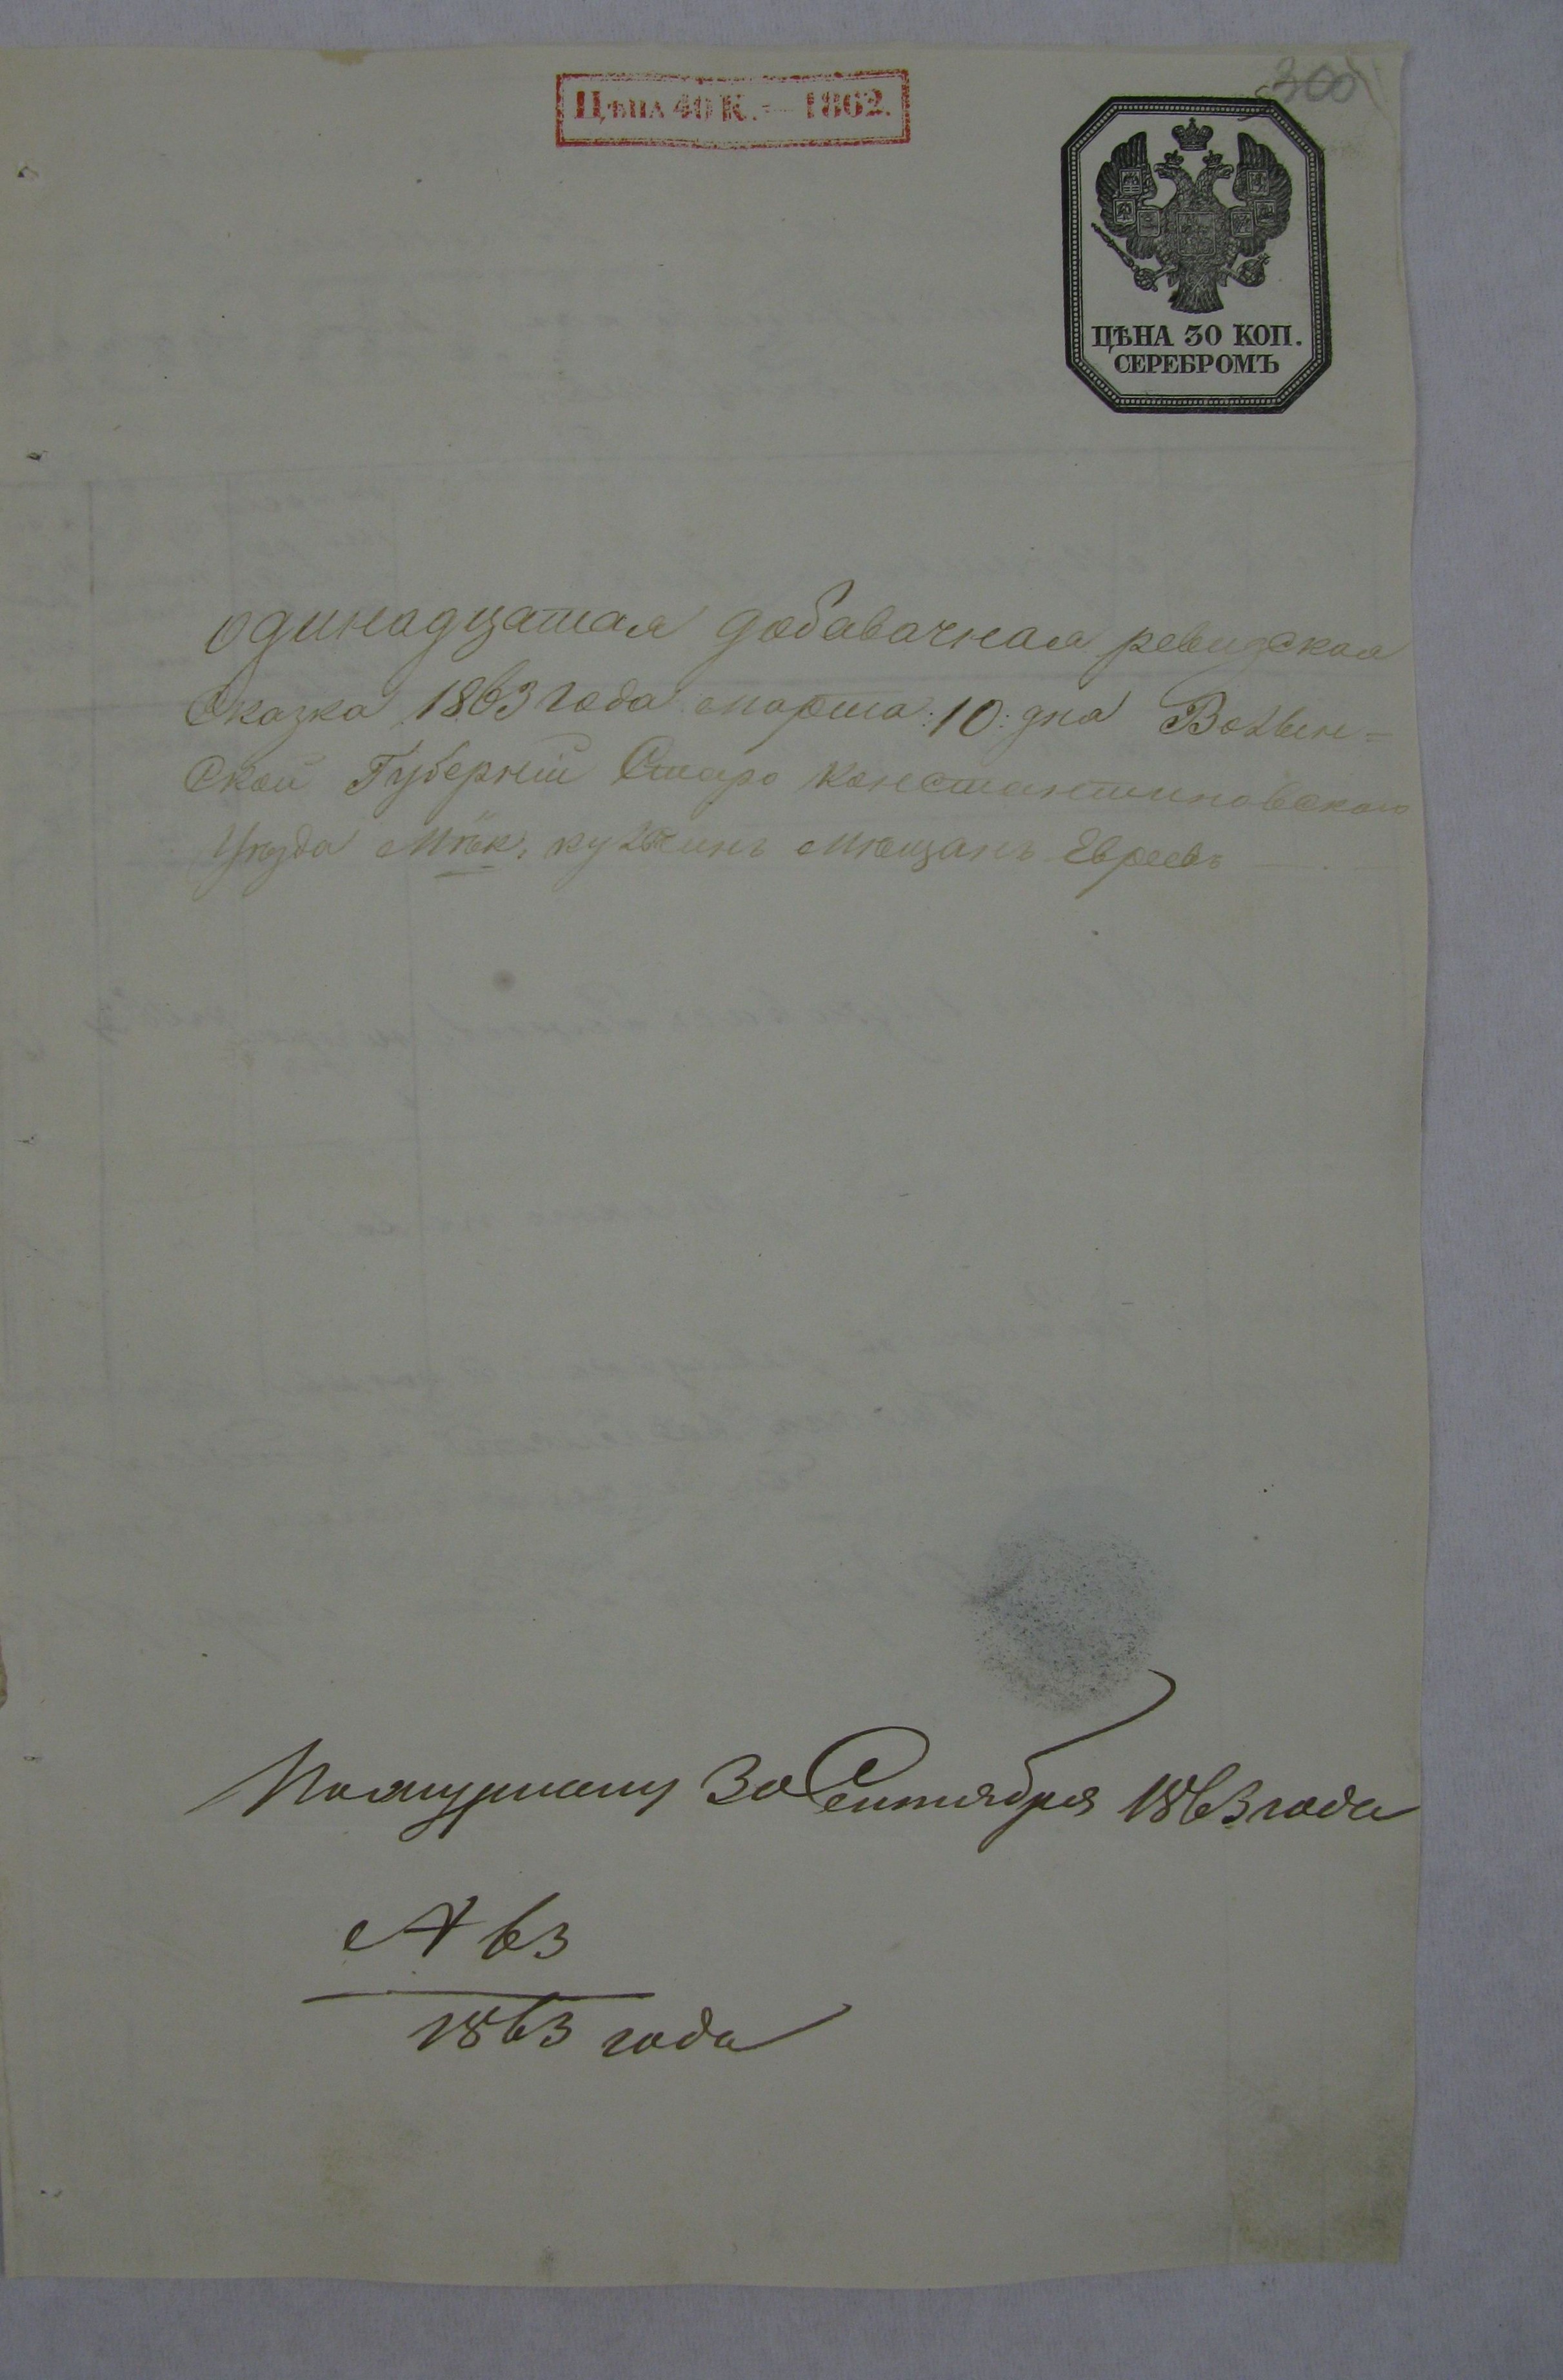 300
Цѣна 40 К. — 1862.
ЦѢНА 30 КОП.
СЕРЕБРОМЪ
Одинадцатая добавачная ревизская
Сказка 1863 года марта :10: дня Волын=
Ской Губерніи Старо Константиновского
Уѣзда Мѣк. кузминъ Мѣщанъ Евреевъ
30 Сентября 1863 года
№ 63
1863 года